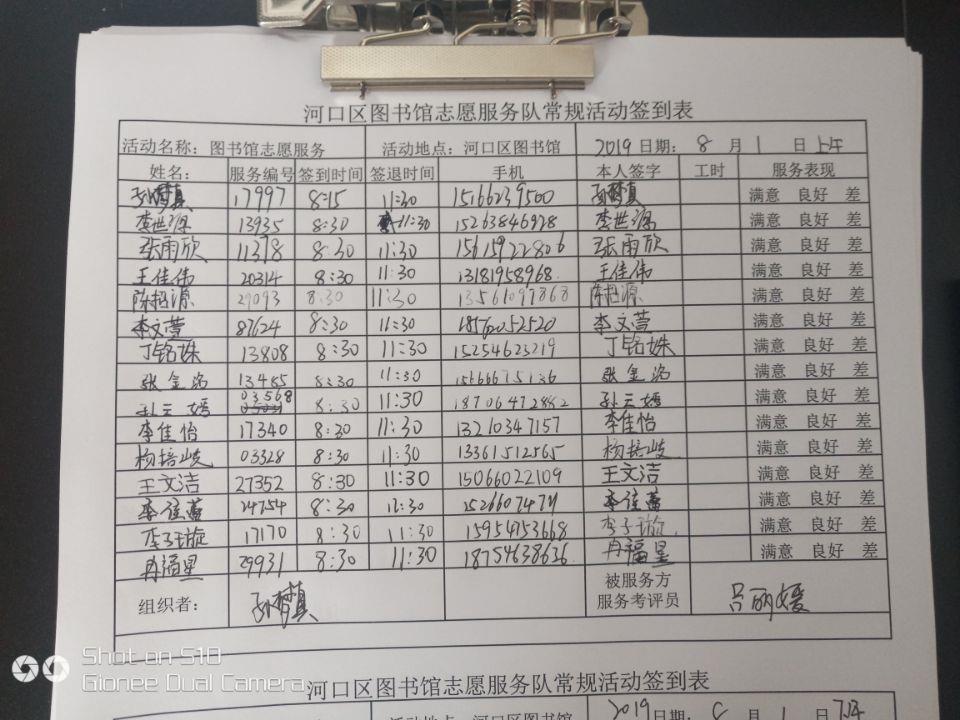 河口区图书馆志愿服务队常规活动签到表
活动名称：图书馆志愿服务 活动地点：河口区图书馆 2019日期：8月1日上午
姓名： 服务编号 签到时间 签退时间 手机 本人签字 工时 服务表现
孙梦真 17997 8:15 11:30 15166239500 孙梦真 满意 良好 差
李世源 13935 8:30 11:30 15263846928 李世源 满意 良好 差
张雨欣 11378 8:30 11:30 15615922806 张雨欣 满意 良好 差
王佳伟 20314 8:30 11:30 13181958968 王佳伟 满意 良好 差
陈招源 29093 8:30 11:30 13561097868 陈招源 满意 良好 差
李文萱 87624 8:30 11:30 18562052520 李文萱 满意 良好 差
丁铭姝 13808 8:30 11:30 15254623219 丁铭姝 满意 良好 差
张金洺 13485 8:30 11:30 15166675136 张金洺 满意 良好 差
孙云嫣 03568 8:30 11:30 18706472882 孙云嫣 满意 良好 差
李佳怡 17340 8:30 11:30 13210347157 李佳怡 满意 良好 差
杨培岐 03328 8:30 11:30 13361512565 杨培岐 满意 良好 差
王文洁 27352 8:30 11:30 15066022109 王文洁 满意 良好 差
李佳蕾 24754 8:30 11:30 15266074771 李佳蕾 满意 良好 差
李子璇 17170 8:30 11:30 15954753668 李子璇 满意 良好 差
冉福星 29931 8:30 11:30 18754638636 冉福星 满意 良好 差
组织者： 孙梦真 被服务方
服务考评员 吕丽媛
Shot on S10
Gionee Dual Camera
河口区图书馆志愿服务队常规活动签到表
活动地点：河口区图书馆 2019日期：8月1日下午